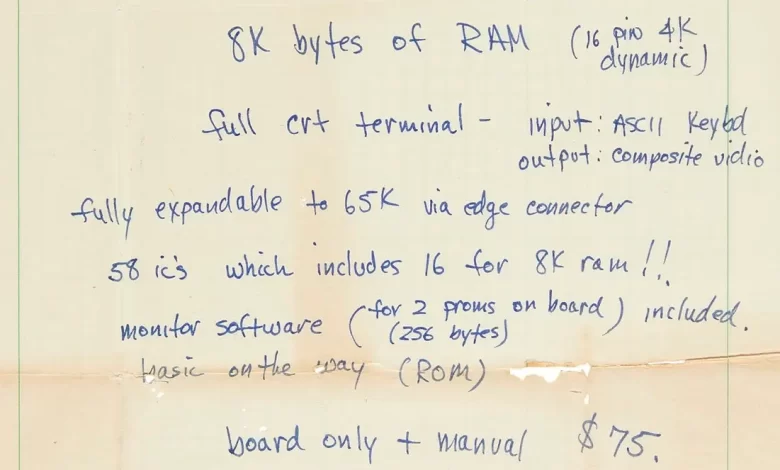 8K bytes of RAM (16 pin 4K
dynamic)
full crt terminal - input: ASCII Keybd
output: composite vidio
fully expandable to 65K via edge connector
58 ic's which includes 16 for 8K ram!!
monitor software (for 2 proms on board) included.
(256 bytes)
basic on the way (ROM)
board only + manual $75.